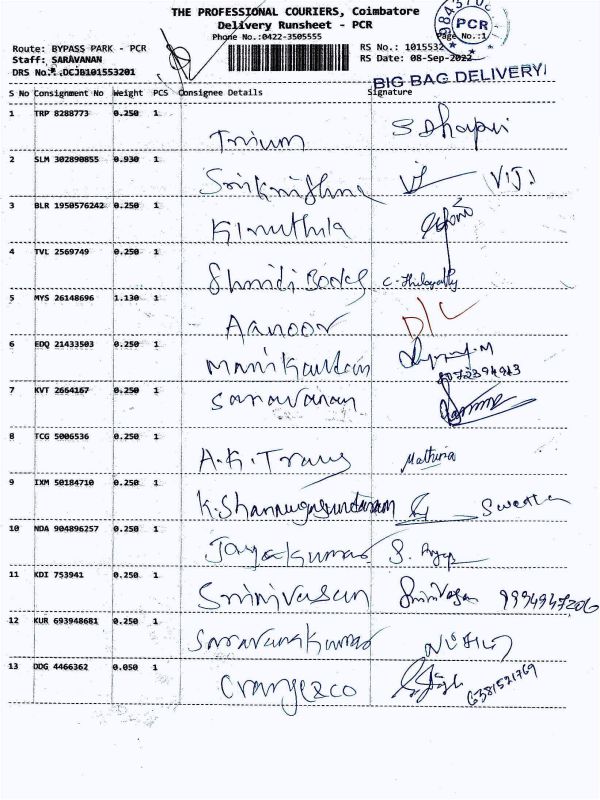 THE PROFESSIONAL COURIERS, Coimbatore
Delivery Runsheet - PCR
Phone No.:0422-3505555
PCR
Page No.:1
Route: BYPASS PARK - PCR
Staff: SARAVANAN
DRS No.: DCJB101553201
RS No.: 1015532
RS Date: 08-Sep-2022
BIG BAG DELIVERY
S No Consignment No Weight PCS Consignee Details Signature
1 TRP 8288773 0.250 1
Trium
2 SLM 302890855 0.930 1
Srikrishna VIJI
3 BLR 1950576242 0.250 1
Kiruthila
4 TVL 2569749 0.250 1
Books
5 MYS 26148696 1.130 1
Aanoor D/L
6 EDQ 21433503 0.250 1
Manikandan
7 KVT 2664167 0.250 1
Saravanan
8 TCG 5006536 0.250 1
A.K. Trans Mathina
9 IXM 50184710 0.250 1
K. Shanmugasundaram
10 NDA 904896257 0.250 1
Jayakumar
11 KDI 753941 0.250 1
Srinivasan Srinivasan 9994947206
12 KUR 693948681 0.250 1
Saravanakumar
13 DDG 4466362 0.050 1
Crange&co 6381521769